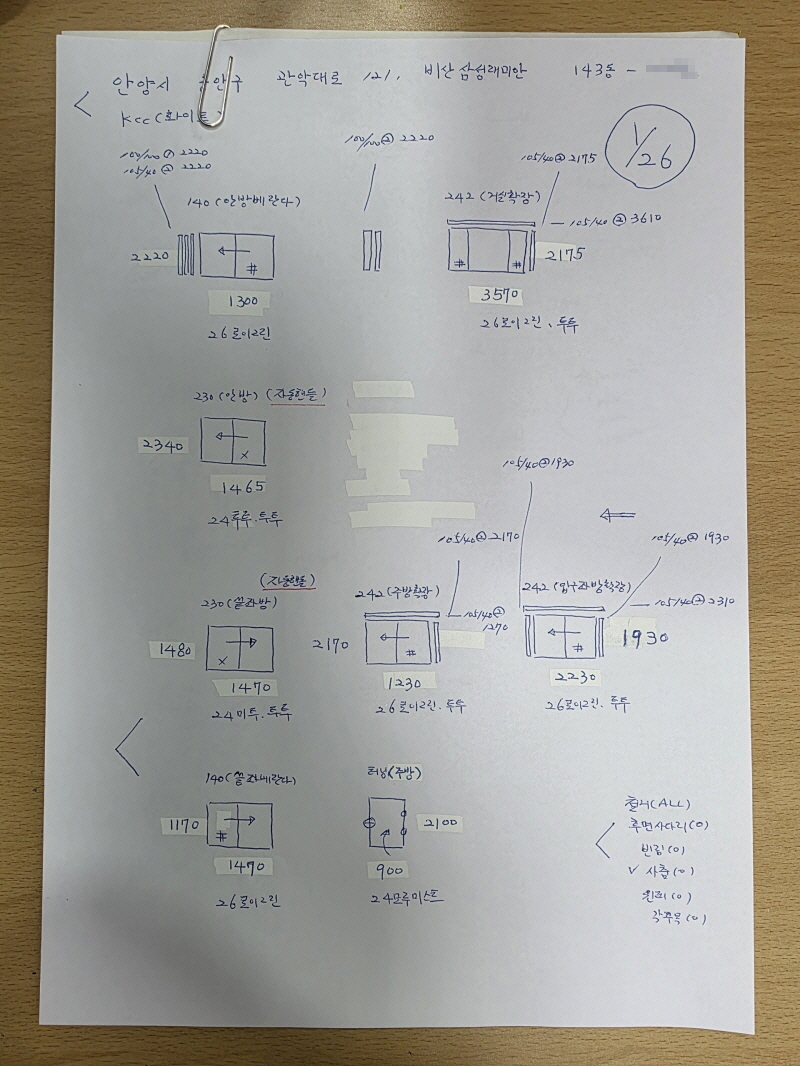 안양시 동안구 관악대로 121, 비산삼성래미안 143동 -
KCC (화이트)
1/26
100/100 @ 2220
105/40 @ 2220
100/100 @ 2220
105/40 @ 2175
105/40 @ 3610
140 (안방베란다)
2220
#
1300
26로이그린
242 (거실확장)
# #
2175
3570
26로이그린, 투투
230 (안방) (자동핸들)
2340
X
1465
24투투.투투
105/40 @ 1930
105/40 @ 2170
105/40 @ 1930
(자동핸들)
230 (끝좌방)
1480
X
1470
24미투.투투
242 (주방확장)
105/40 @ 1270
2170
#
1230
26로이그린.투투
242 (입구좌방확장)
105/40 @ 2310
#
1930
2230
26로이그린.투투
140 (끝좌베란다)
1170
#
1470
26로이그린
터닝 (주방)
2100
900
24모루미스트
철거 (ALL)
후면사다리 (0)
빈림 (0)
V 사춤 (0)
각주목 (0)